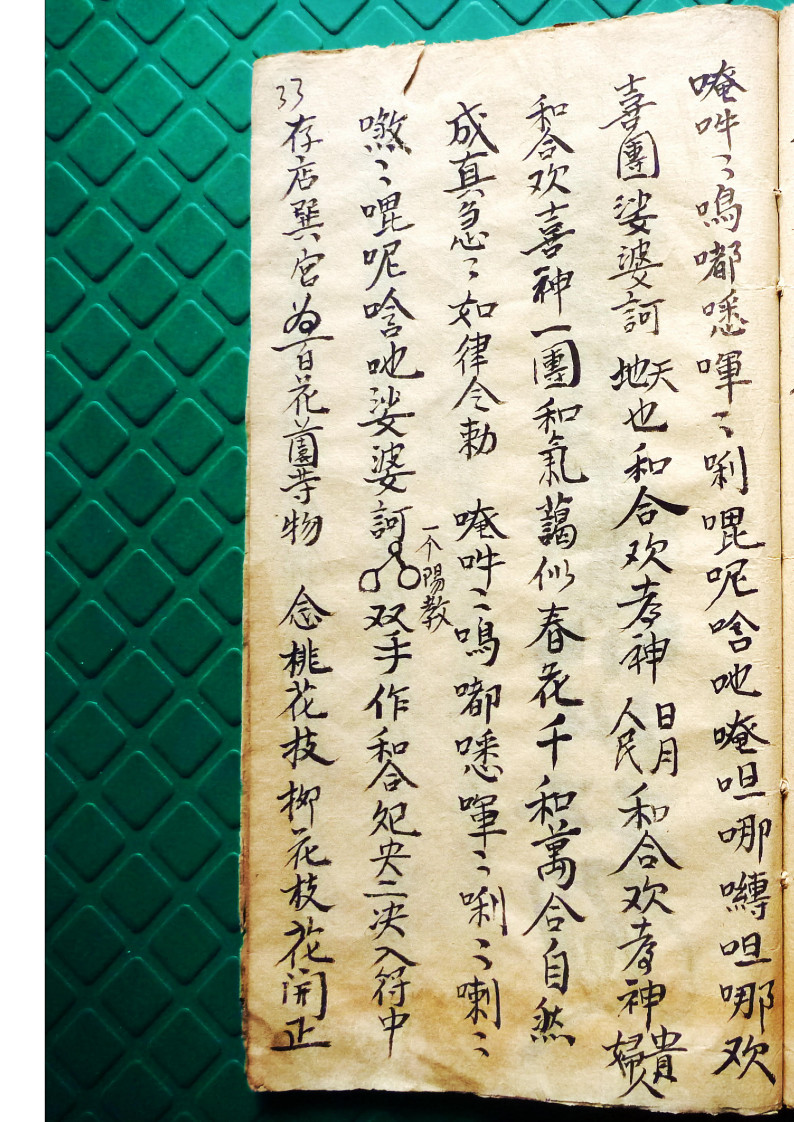 唵吽〻嗚嘟㗭喗〻唎嗶呢唅吔唵呾哪囀呾哪欢
喜團娑婆訶 天地也和合欢喜神 日月人民和合欢喜神 貴婦人
和合欢喜神一團和氣藹似春花千和萬合自然
成真急〻如律令勅 唵吽〻嗚嘟㗭喗〻唎〻喇〻
一个陽教
呢唅吔娑婆訶 双手作和合 央二决入符中
33
存店巽宮为百花薗等物 念桃花枝柳花枝花開正